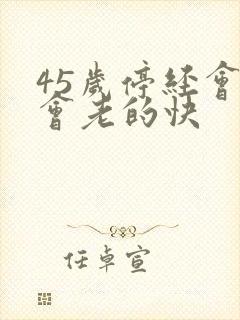 45歲停經會
會老的快
任卓宣